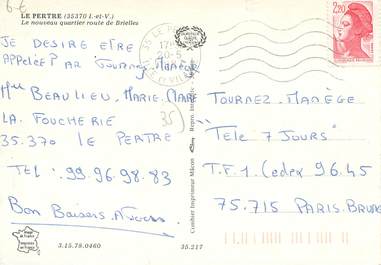 6€
LE PERTRE (35370 I.-et-V.)
Le nouveau quartier route de Brielles
JE DESIRE ETRE
APPELÉE PAR TOURNEZ-MANÈGE
Mlle BEAULIEU MARIE-
LA FOUCHERIE
35.370 LE PERTRE
TEL: 99.96.98.83
Bon Baisers A Vous
3.15.78.0460
35.217
35
Combier Imprimeur Mâcon
35 LE
2,20
TOURNEZ-MANÈGE
"TELE 7 JOURS"
T.F.1 Cedex 96.45
75.715 PARIS-BRUNE